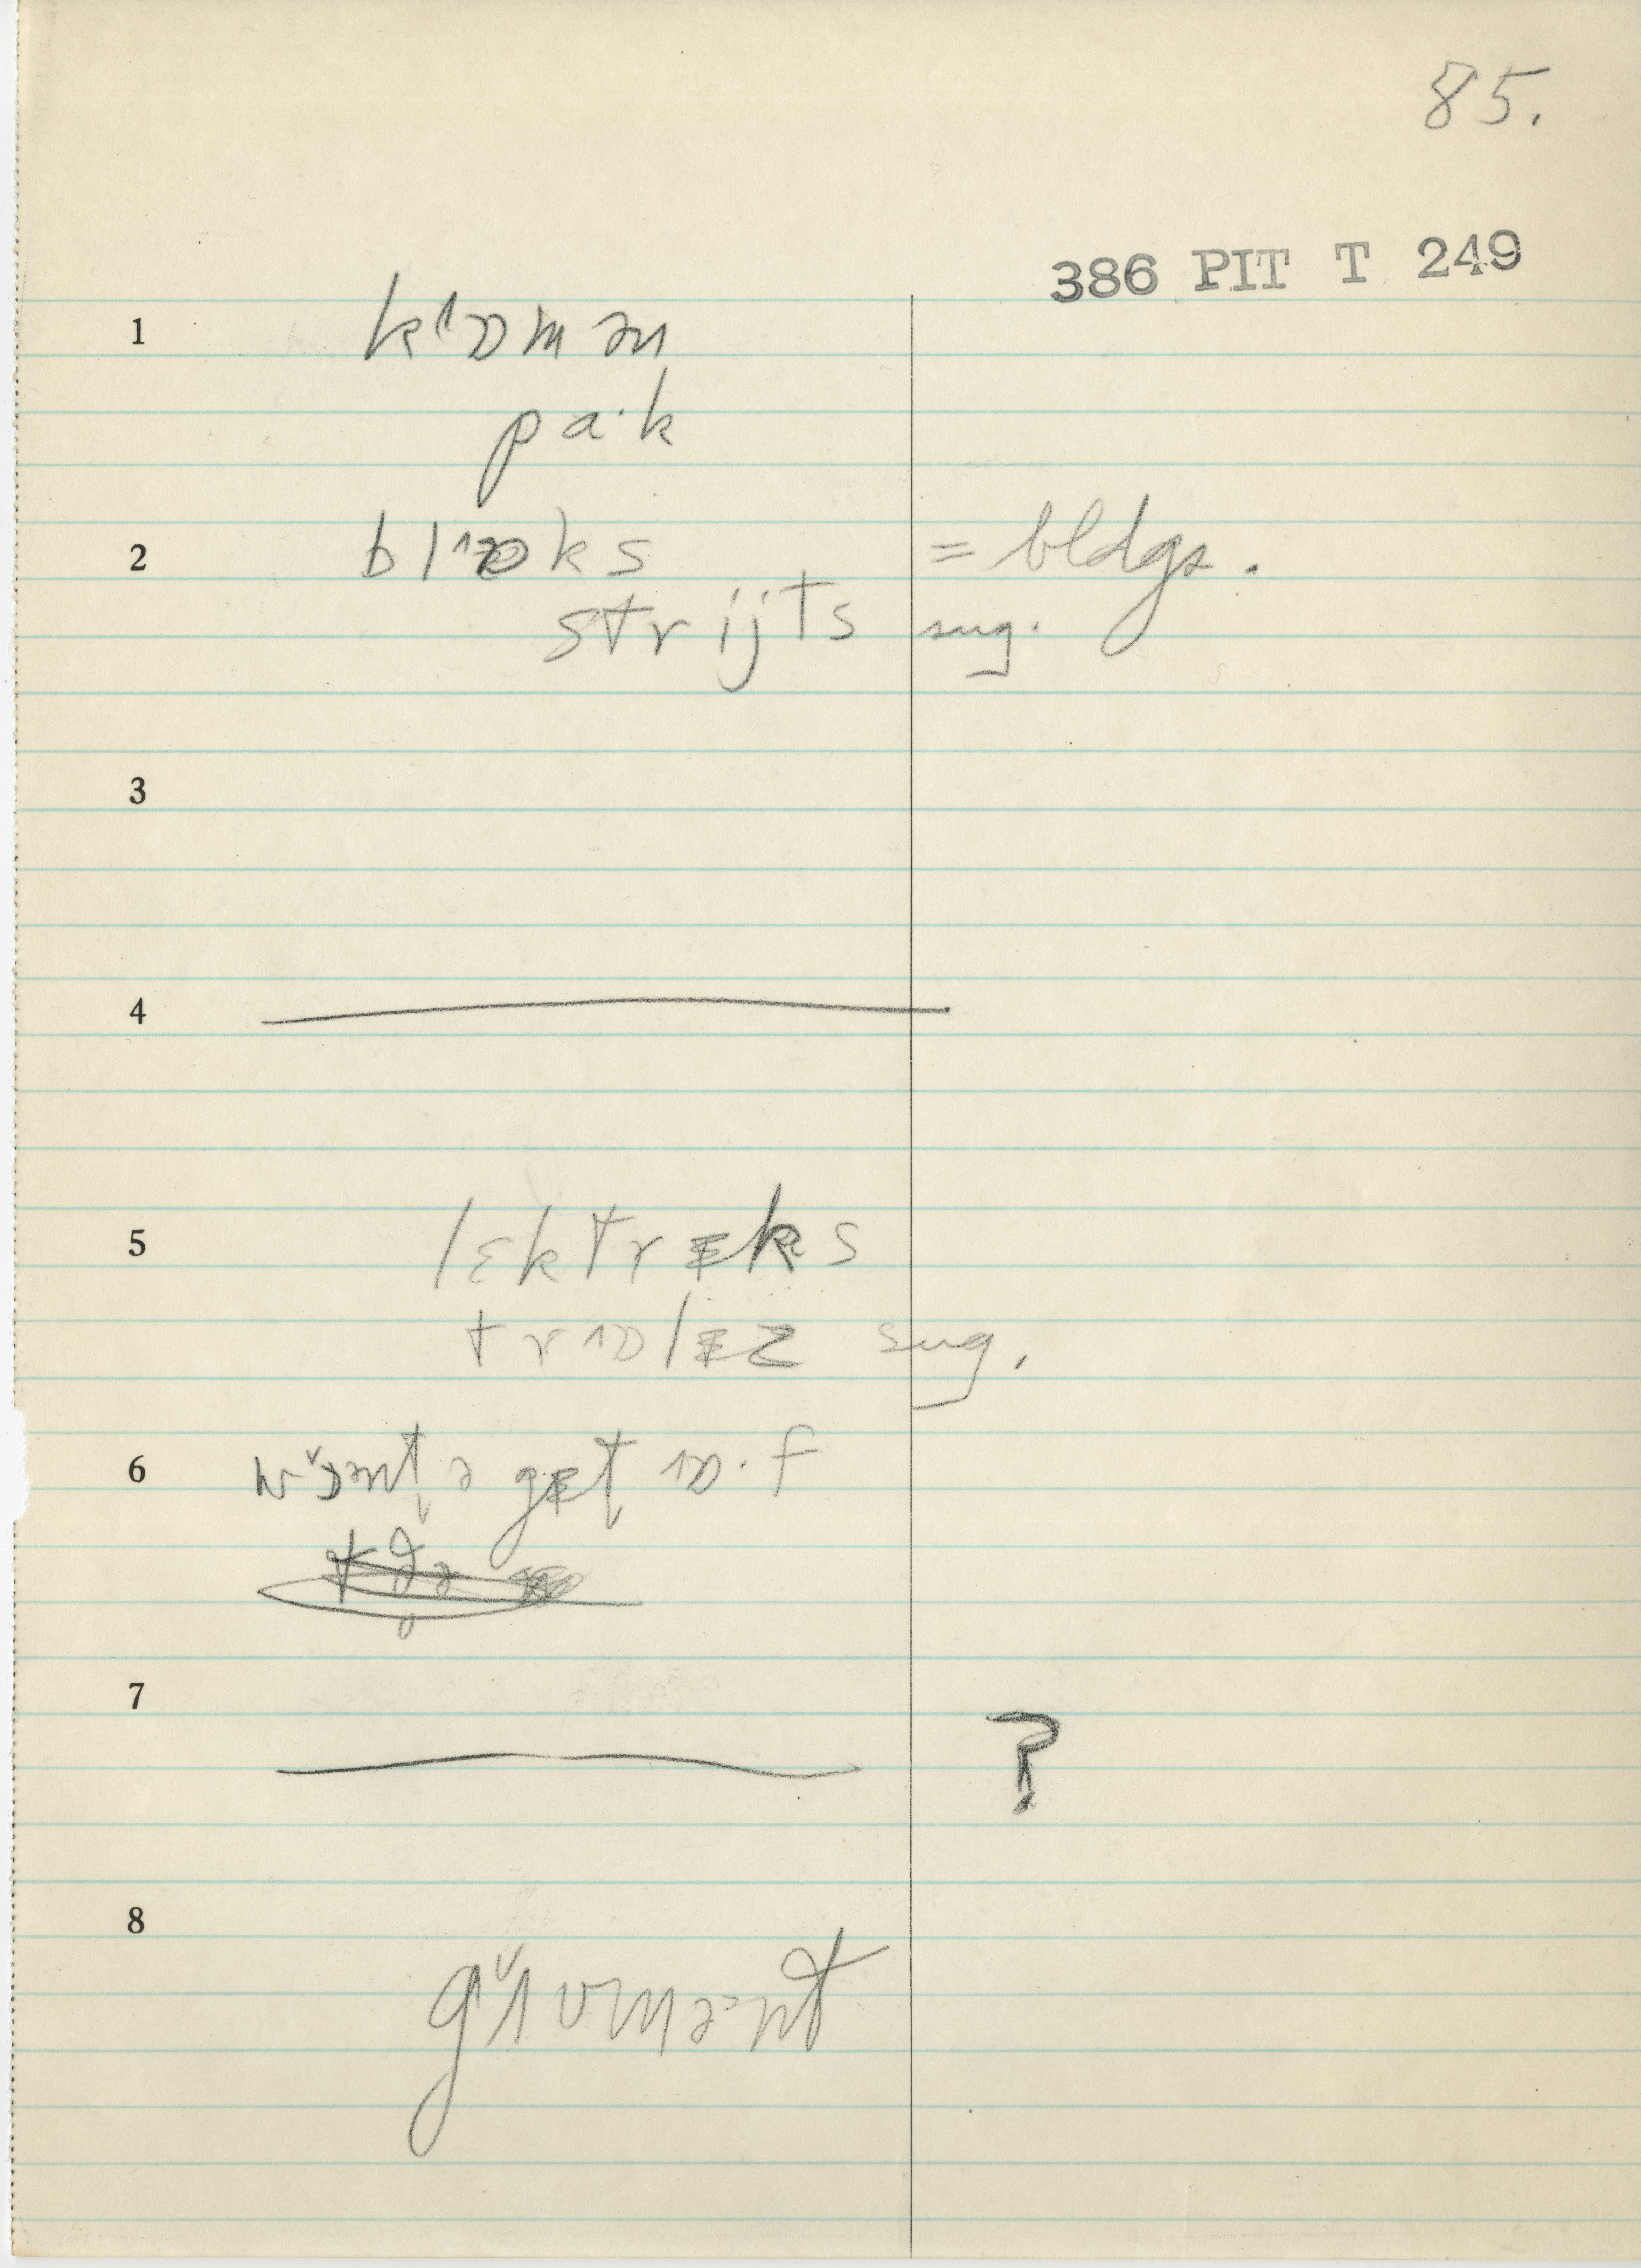 85.
386 PIT T 249
1 k1ɒmən
pa·k
2 bl1ɒks = bldgs.
strijts sug.
3
4
5 lɛktrɨks
tr1ɒlɨz sug.
6 wɔ̌ənt̬ə gɨt̬ 1ɒ·f
7 ?
8 gʌ̌vmənt